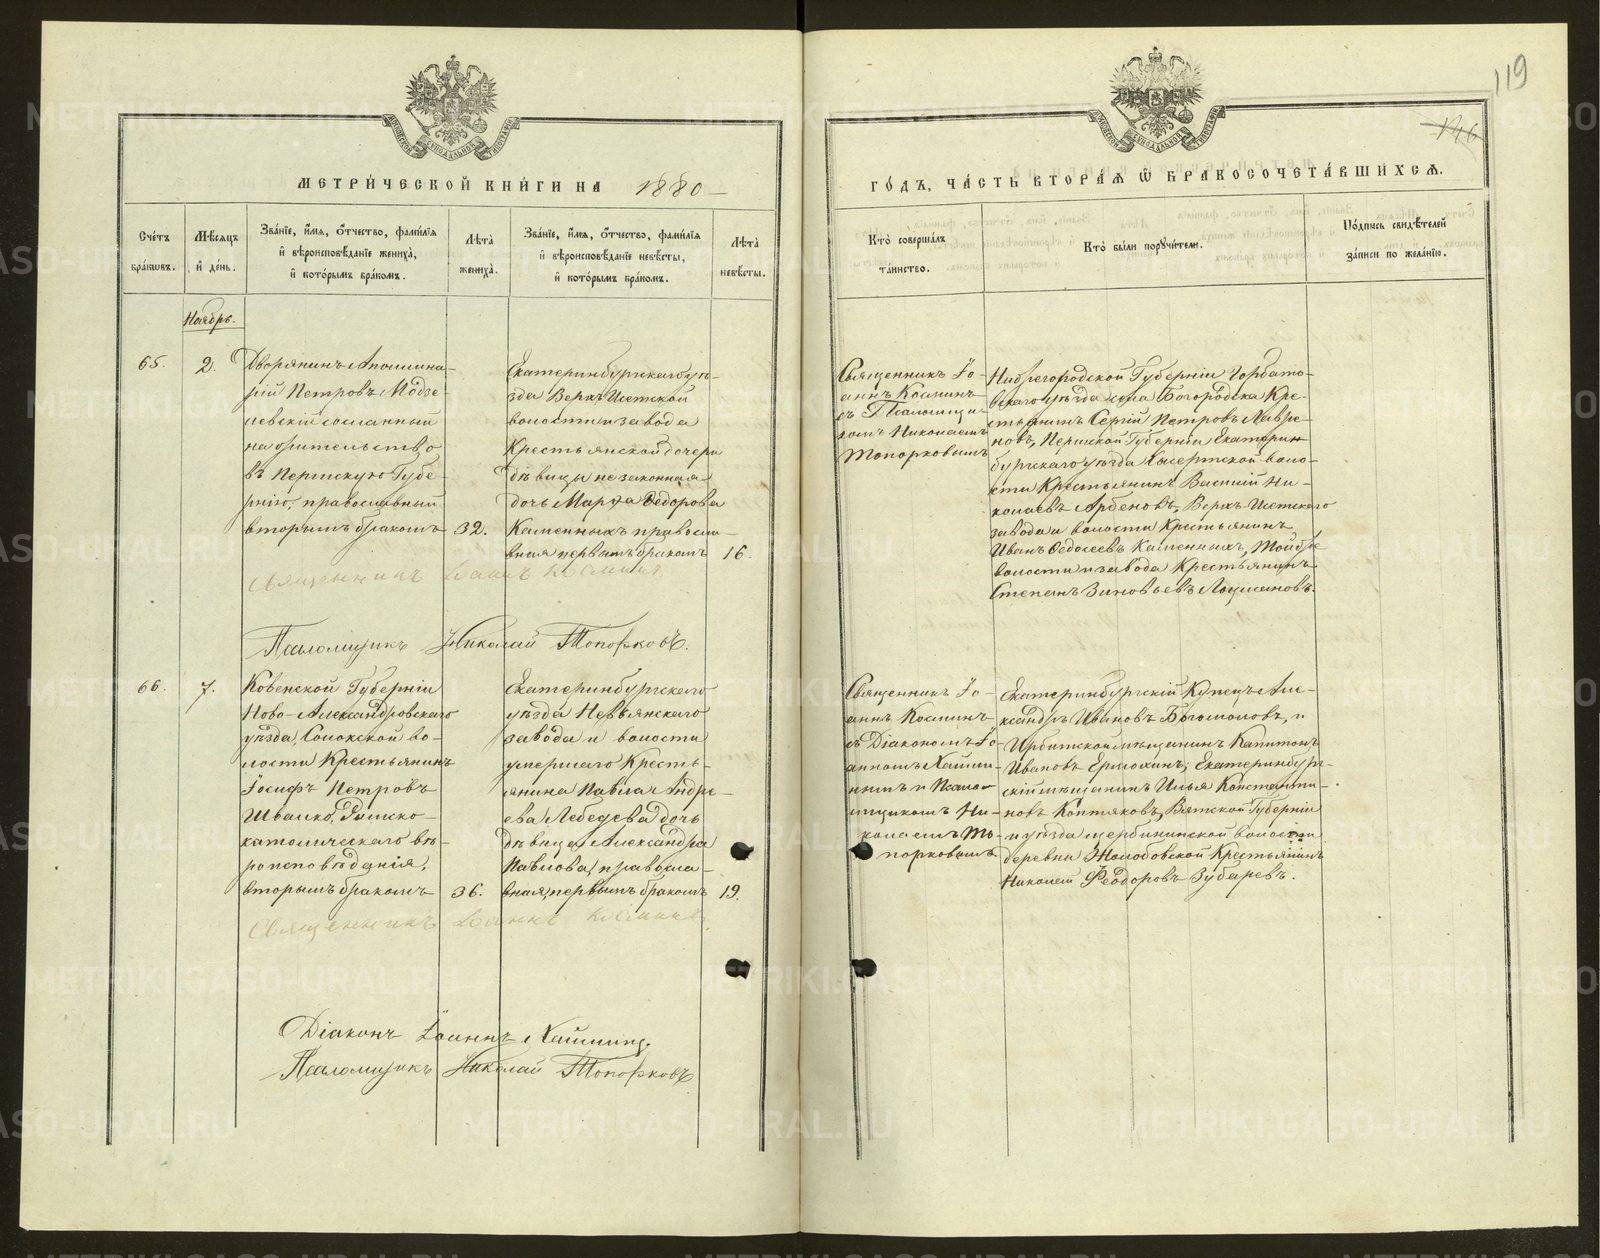 119
146
МЕТРИ́ЧЕСКОЙ КНИ́ГИ НА 1880
ГО́ДЪ, ЧА́СТЬ ВТОРА́Я Ѿ БРАКОСОЧЕТА́ВШИХСЯ.
Счетъ браковъ.
Мѣсяцъ и день.
Званіе, имя, отчество, фамилія и вѣроисповѣданіе жениха, и которымъ бракомъ.
Лѣта жениха.
Званіе, имя, отчество, фамилія и вѣроисповѣданіе невѣсты, и которымъ бракомъ.
Лѣта невѣсты.
Кто совершалъ таинство.
Кто были поручители.
Подпись свидѣтелей записи по желанію.
Ноябрь.
65.
2.
Дворянинъ Аполлина-
рій Петровъ Модзе-
левскій сосланный
на жительство
въ Пермскую Губе-
рнію, православный
вторымъ бракомъ
32.
Екатеринбургскаго уѣ-
зда Верхъ Исетской
волости и завода
Крестьянской дочери
дѣвицы незаконная
дочь Марѳа Ѳедорова
Каменныхъ правосла-
вная первымъ бракомъ
16.
Священникъ Іо-
аннъ Косминъ
съ Псаломщи-
комъ Николаемъ
Топорковымъ
Нижегородской Губерніи Горбато-
вскаго уѣзда села Богородска Кре-
стьянинъ Сергій Петровъ Лавре-
новъ, Пермской Губерніи Екатерин-
бургскаго уѣзда Сысертской воло-
сти Крестьянинъ Василій Ни-
колаевъ Арбеновъ, Верхъ-Исетскаго
завода и волости Крестьянинъ
Иванъ Ѳедосеевъ Каменныхъ, Той же
волости и завода Крестьянинъ
Степанъ Зиновьевъ Лоцмановъ.
Священникъ Іоаннъ Косминъ
Псаломщикъ Николай Топорковъ.
66.
7.
Ковенской Губерніи
Ново-Александровскаго
уѣзда, Солокской во-
лости Крестьянинъ
Іосифъ Петровъ
Швалко, Римско-
католическаго вѣ-
роисповѣданія,
вторымъ бракомъ
36.
Екатеринбургскаго
уѣзда Невьянскаго
завода и волости
умершаго Кресть-
янина Павла Андре-
ева Лебедева дочь
дѣвица Александра
Павлова, правосла-
вная, первымъ бракомъ
19.
Священникъ Іо-
аннъ Косминъ
съ Діакономъ Іо-
анномъ Хайми-
нымъ и Псало-
мщикомъ Ни-
колаемъ То-
порковымъ
Екатеринбургскій Купецъ Але-
ксандръ Ивановъ Богомоловъ, и
Ирбитской мѣщанинъ Капитонъ
Ивановъ Ермохинъ; Екатеринбург-
скій мѣщанинъ Илья Константи-
новъ Коптяковъ, Вятской Губерніи
и уѣзда Щербининской волости
деревни Жолобовской Крестьянинъ
Николай Ѳеодоровъ Зубаревъ.
Священникъ Іоаннъ Косминъ
Діаконъ Іоаннъ Хайминъ.
Псаломщикъ Николай Топорковъ
METRIKI.GASO-URAL.RU